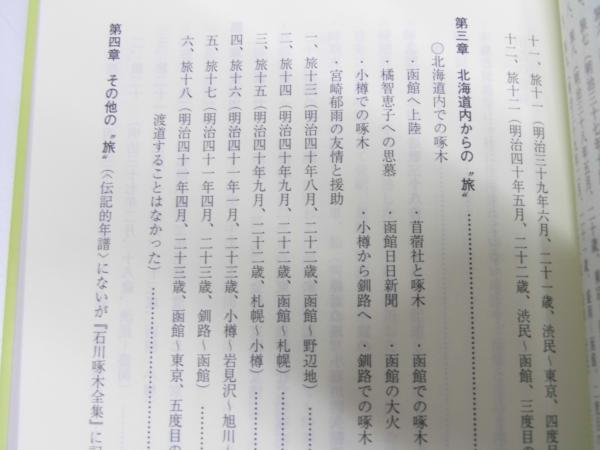 十一、旅十一（明治三十九年六月、二十一歳、渋民～東京、四度目
十二、旅十二（明治四十年五月、二十二歳、渋民～函館、三度目の
第三章　北海道内からの〝旅〟………………
〇北海道内での啄木
・函館へ上陸　・苜蓿社と啄木　・函館での啄木
・橘智恵子への思慕　・函館日日新聞　・函館の大火
・小樽での啄木　・小樽から釧路へ　・釧路での啄木
・宮崎郁雨の友情と援助
一、旅十三（明治四十年八月、二十二歳、函館～野辺地）……
二、旅十四（明治四十年九月、二十二歳、函館～札幌）……
三、旅十五（明治四十年九月、二十二歳、札幌～小樽）……
四、旅十六（明治四十一年一月、二十三歳、小樽～岩見沢～旭川～
五、旅十七（明治四十一年四月、二十三歳、釧路～函館）……
六、旅十八（明治四十一年四月、二十三歳、函館～東京、五度目の
渡道することはなかった）………………
第四章　その他の〝旅〟（〈伝記的年譜〉にないが『石川啄木全集』に記